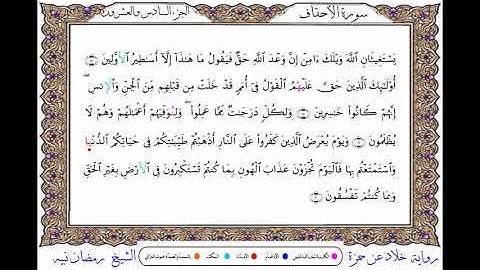 سورة الأحقاف
الجزء السادس والعشرون
يَسْتَغِيثَانِ ٱللَّهَ وَيْلَكَ ءَامِنْ إِنَّ وَعْدَ ٱللَّهِ حَقٌّ فَيَقُولُ مَا هَٰذَآ إِلَّآ أَسَٰطِيرُ ٱلْأَوَّلِينَ
أُو۟لَٰٓئِكَ ٱلَّذِينَ حَقَّ عَلَيْهُمُ ٱلْقَوْلُ فِىٓ أُمَمٍ قَدْ خَلَتْ مِن قَبْلِهِم مِّنَ ٱلْجِنِّ وَٱلْإِنسِ
إِنَّهُمْ كَانُوا۟ خَٰسِرِينَ وَلِكُلٍّ دَرَجَٰتٌ مِّمَّا عَمِلُوا۟ وَلِنُوَفِّيَهُمْ أَعْمَٰلَهُمْ وَهُمْ لَا
يُظْلَمُونَ وَيَوْمَ يُعْرَضُ ٱلَّذِينَ كَفَرُوا۟ عَلَى ٱلنَّارِ أَذْهَبْتُمْ طَيِّبَٰتِكُمْ فِى حَيَاتِكُمُ ٱلدُّنْيَا
وَٱسْتَمْتَعْتُم بِهَا فَٱلْيَوْمَ تُجْزَوْنَ عَذَابَ ٱلْهُونِ بِمَا كُنتُمْ تَسْتَكْبِرُونَ فِى ٱلْأَرْضِ بِغَيْرِ ٱلْحَقِّ
وَبِمَا كُنتُمْ تَفْسُقُونَ
رواية خلاد عن حمزة
الشيخ رمضان نبيه